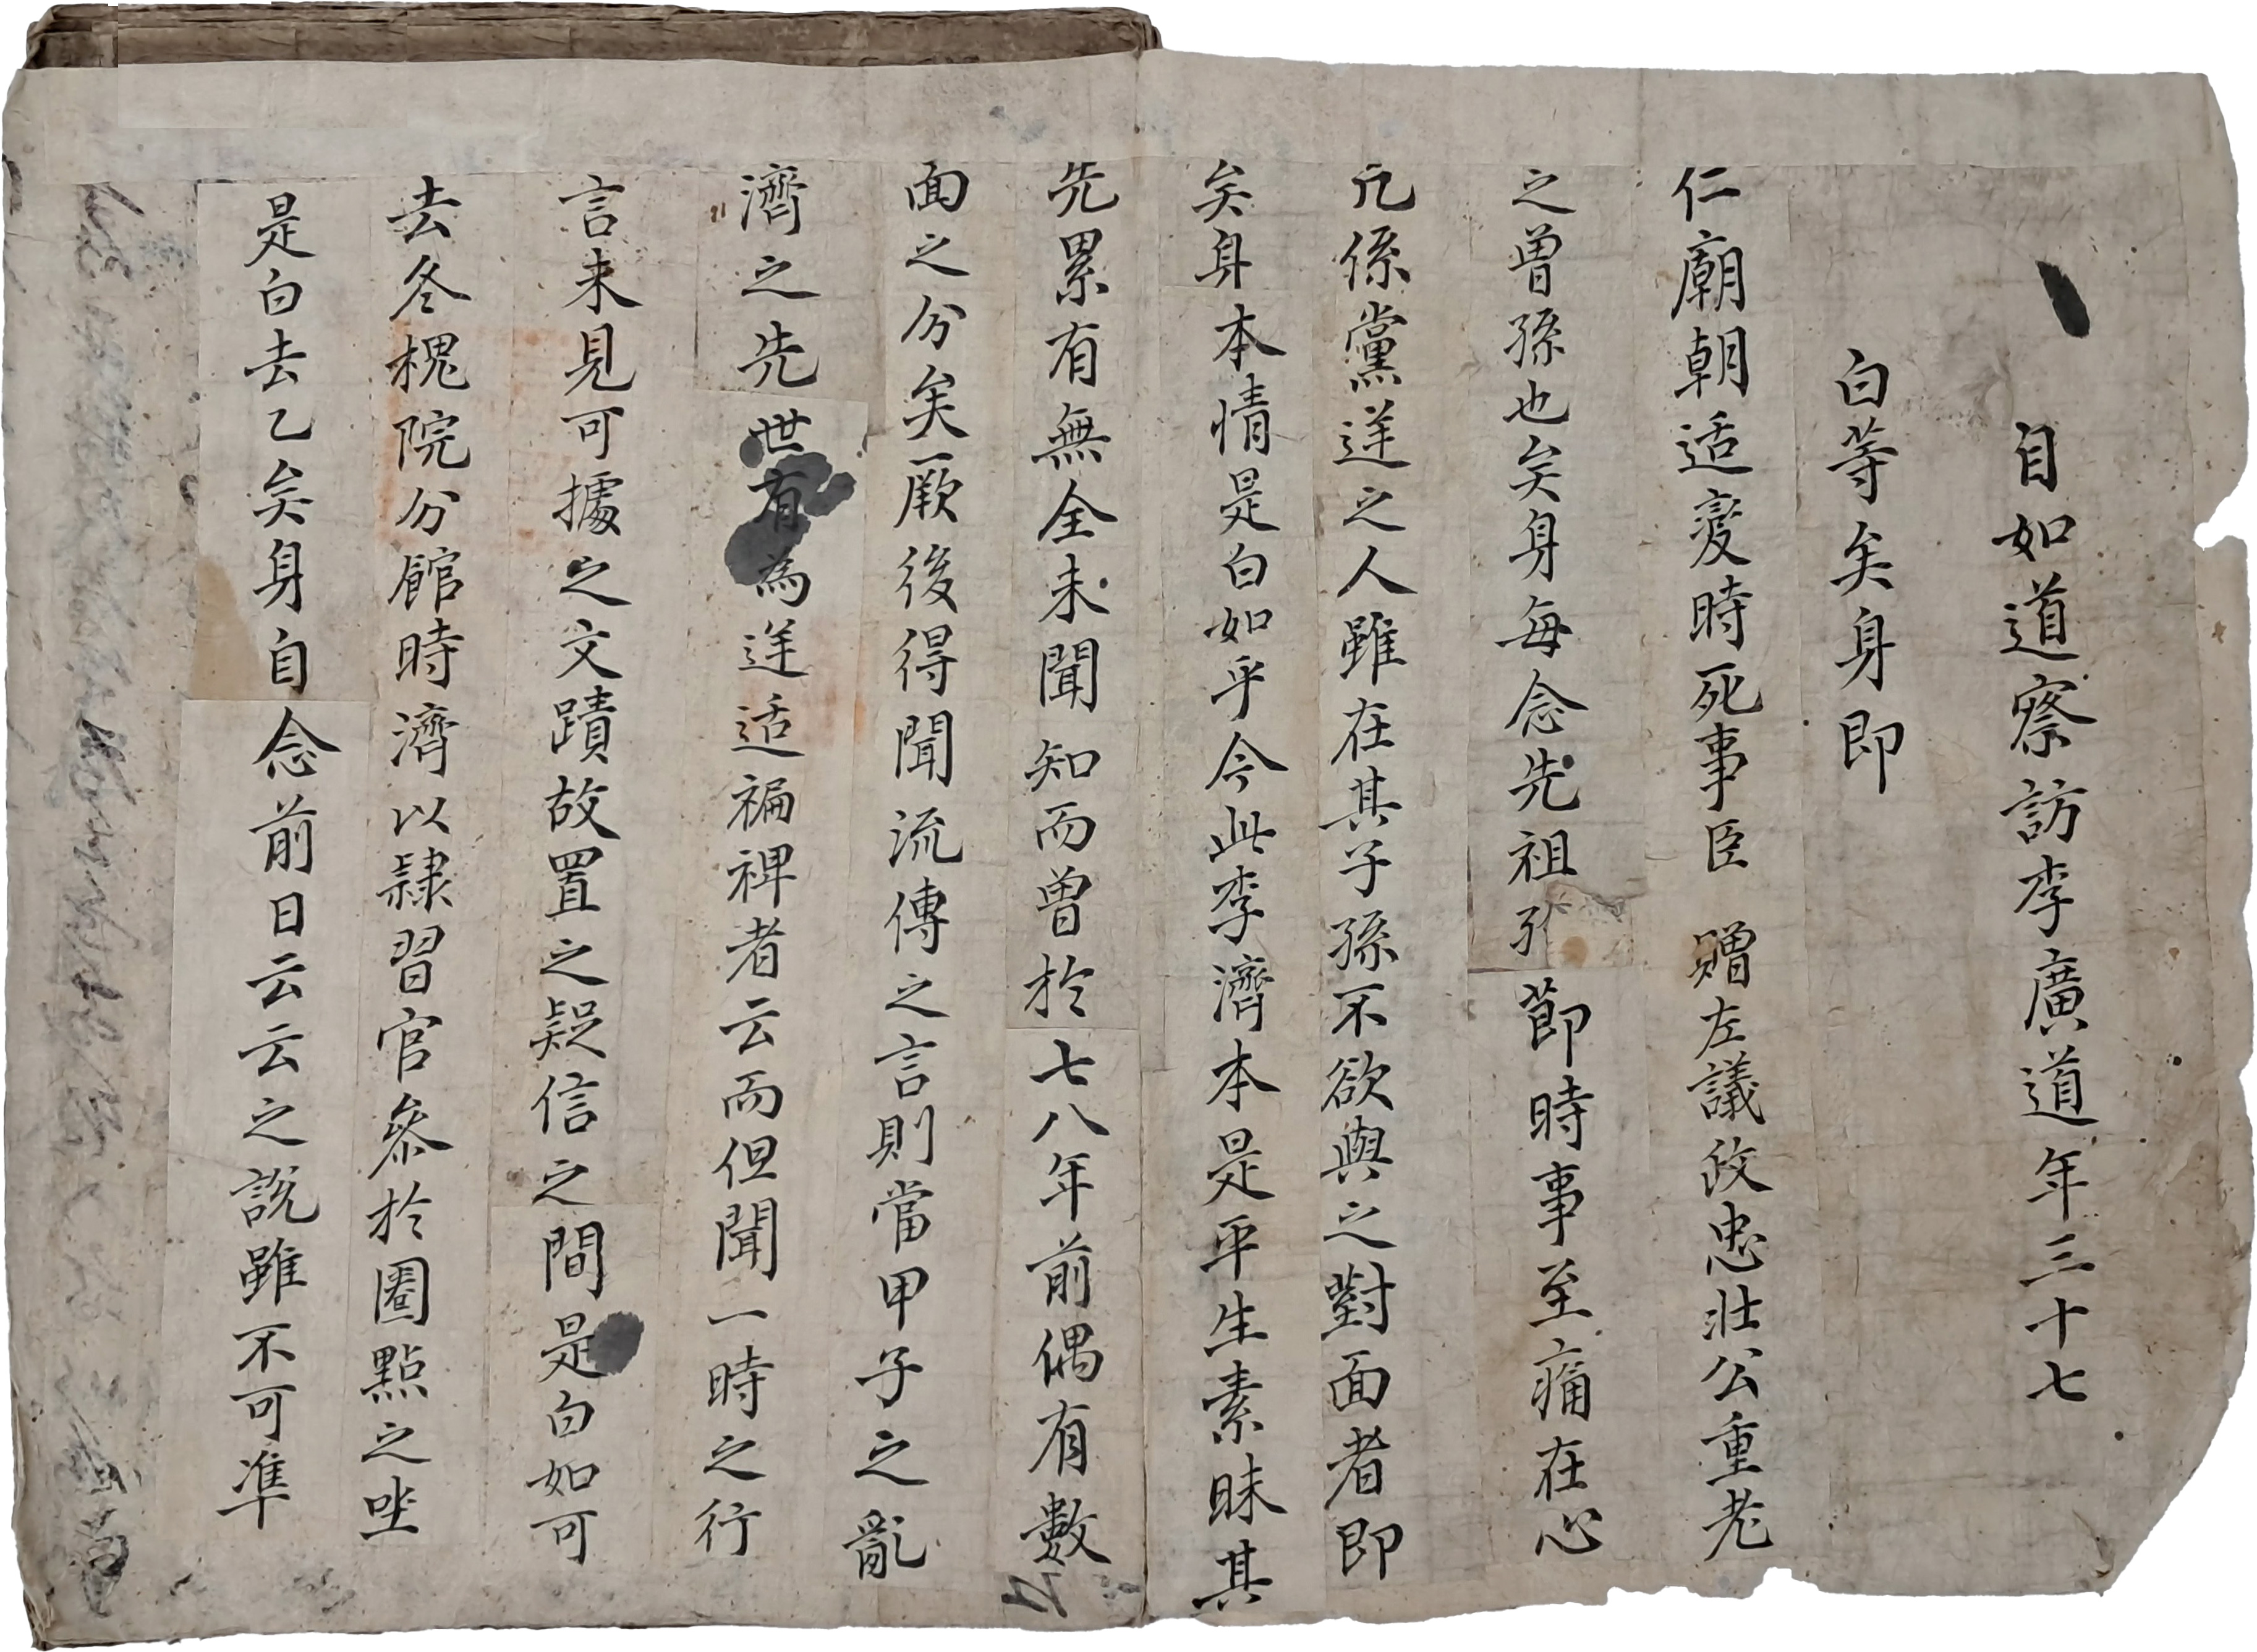 自如道察訪李廣道年三十七
白等矣身即
仁廟朝适變時死事臣 贈左議政忠壯公重老
之曾孫也矣身每念先祖 節時事至痛在心
凡係黨逆之人雖在其子孫不欲與之對面者即
矣身本情是白如乎今此李濟本是平生素昧其
先累有無全未聞知而曾於七八年前偶有數
面之分矣厥後得聞流傳之言則當甲子之亂
濟之先世有為逆适褊裨者云而但聞一時之行
言未見可據之文蹟故置之疑信之間是白如可
去冬槐院分館時濟以隷習官參於圈點之坐
是白去乙矣身自念前日云云之說雖不可準